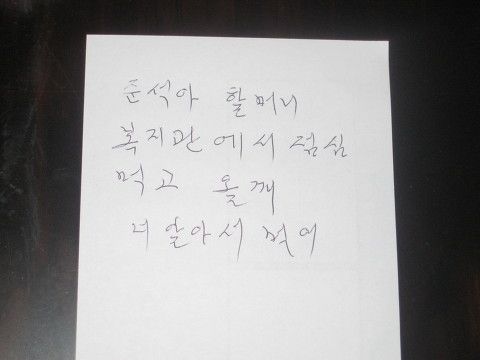 준석아 할머니
복지관에서 점심
먹고 올께
너 알아서 먹어